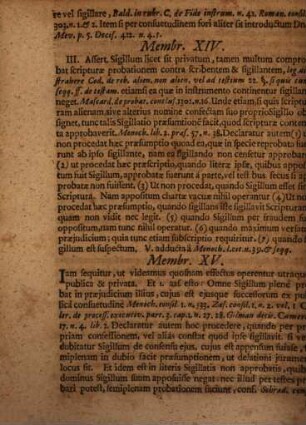 re vel sigillere, Bald. in rubr. C. de Fide instrum. n. 42. Roman. consil.
Mev. p. 5. Decis. 412. n. 4. 5.
Membr. XIV.
III. Assert. Sigillum licet sit privatum, tamen multum compro-
bat scripturæ probationem contra scribentem & sigillantem,
etiamsi quæ in instrumento continentur sigillum
negat. Mascard. de probat.
rans alienum sive alterius nomine consectum
signet, tunc talis Sigillatio probationem facit, quod scriptura
ta approbaverit. Menoch. lib. 2. præs. 57. n. 38. Declaratur autem
ut non procedat hæc præsumptio quoad ea, quæ in specie reprobata fue
runt ab ipso sigillante, nam ea sigillando non censetur approbare
(2) ut procedat hæc præsumptio, quando literæ ipsæ, quibus appo
tum sit Sigillum, approbatæ fuerunt à parte, vel test bus secus si
probatæ non fuissent. (3) Ut non procedat, quando Sigillum esset in
Scriptura. Nam oppositum chartæ vacuæ nihil operatur (4) Ut
non procedat hæc præsumptio, quando sigillasset ipse sigillavit Scriptu
quam non vidit nec legit. (5) quando Sigillum per fraudem fu
oppositum, nam tunc nihil operatur. (6) quando maximum versa
præjudicium; quia tunc etiam subscriptio requiritur. (7) quando
gillum est suspectum. V. adducta à Menoch. l. cit. n. 39. & seqq.
Membr. XV.
Jam sequitur, ut videamus quosnam effectus operentur
publica & privata. Et quod 1. esto: Omne Sigillum plenè pro
bat in præjudicium illius, cujus est quamque successorum ex
lica consuetudine Menoch. consil. 1. n. 133. Zas. consil. 1. n. 2. vol. 1.
de process. executiv. part. 3. cap. 1. n. 27. 28. Gilman decis. Camer.
17. n. 4. lib. 2. Declaratur autem hoc procedere, quando per
priam confessionem, vel alias constat quod ipse sigillavit. si ve
dubitatur Sigillum de consensu ejus, cujus est appositum fuisse,
mplenam in dubio facit præsumptionem, ut delationi juramen
locus sit. Et idem est in literis Sigillatis non approbatis, quibus
dominus Sigillum suum apposuisse negat: nec illius per testes pro
bari potest, semiplenam probationem faciunt,